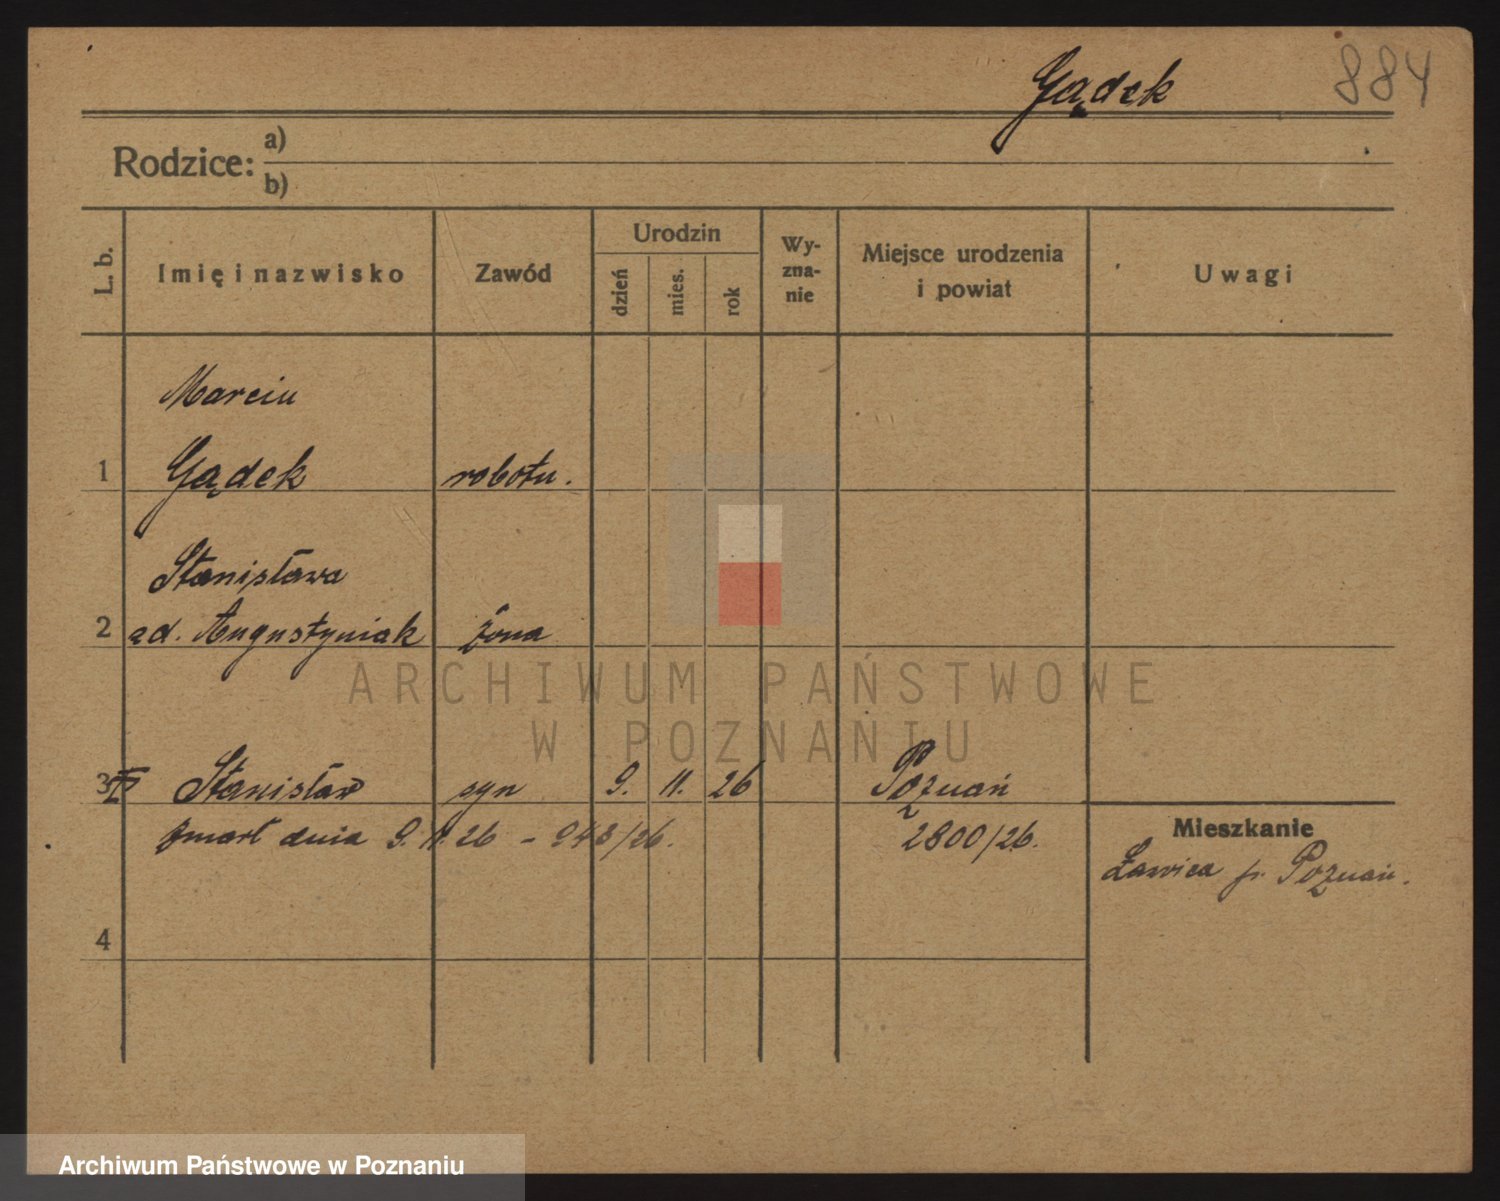 Gądek 884
Rodzice: a)
b)
L. b. Imię i nazwisko Zawód Urodzin dzień mies. rok Wy-zna-nie Miejsce urodzenia i powiat Uwagi
Marcin
1 Gądek robotn.
Stanisława
2 ad. Augustyniak żona
ARCHIWUM PAŃSTWOWE
W POZNANIU
3 Stanisław syn 9. 11. 26 Poznań
zmarł dnia 9.11.26 - 948/26. 2800/26.
Mieszkanie
Ławica p. Poznań.
4
Archiwum Państwowe w Poznaniu